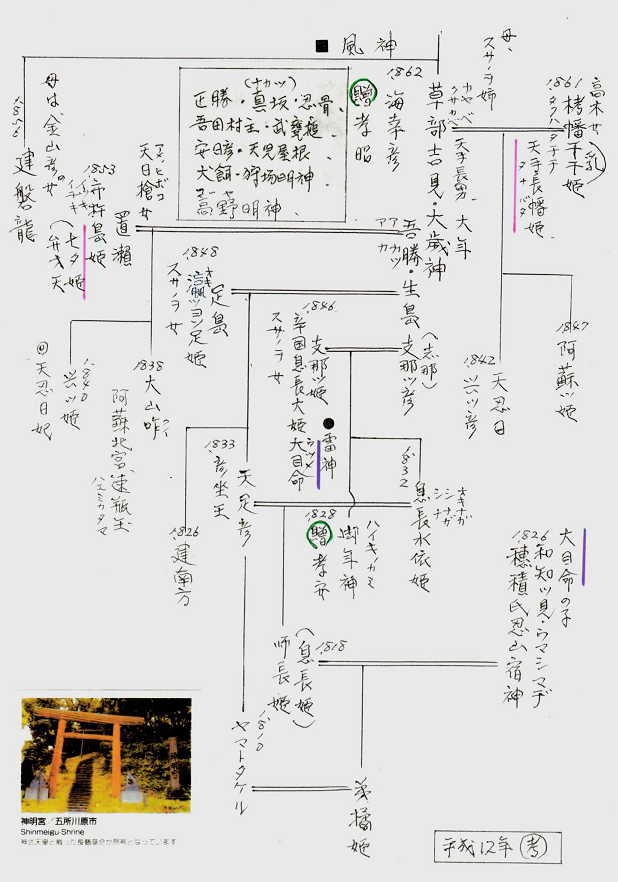 ■ 風神
母、
スサノヲ姉
高木女
1861
栲幡千千姫
(乳)
タクハタチヂ
天手長幡姫
タナバタ
1862
草部吉見・大歳神
カヤベ
クサカベ
天手長男 大年
海幸彦
贈 孝昭
(ナカツ)
正勝・真坂・忍骨、
吾田村主・武甕槌
安日彦・天児屋根
犬飼・狩場明神
コーヤ
高野明神
1856
建磐龍
母は金山彦女。
1853
市杵島姫
イチキ
(七夕姫
弁才天
アメノヒボコ
天日槍女
置瀬
吾勝・生島
アカツ
アカ
1848
瀛ツヨソ足姫
オキ
足島
スサノヲ女
1846
支那ツ姫
辛国息長大姫大目命
ウツメ
スサノヲ女
(志那)
支那ツ彦
●雷神
1847
阿蘇ツ姫
1842
天忍日
興ツ彦
1840
興ツ姫
天忍日妃
1838
大山咋
クイ
阿蘇北宮、速瓶玉
ハエミカタマ
1833
彦坐王
天足彦
1832
息長水依姫
オキナガ
シナガ
シナ
1828
贈 孝安
歳年神
ハイキノカミ
1826
建南方
大目命の子
1826
和知ツ見・ウマシマヂ
穂積氏忍山宿禰
1818
(息長姫)
師長姫
1810
ヤマトタケル
弟橘姫
神明宮/五所川原市
Shinmeigu-Shrine
平成12年 考